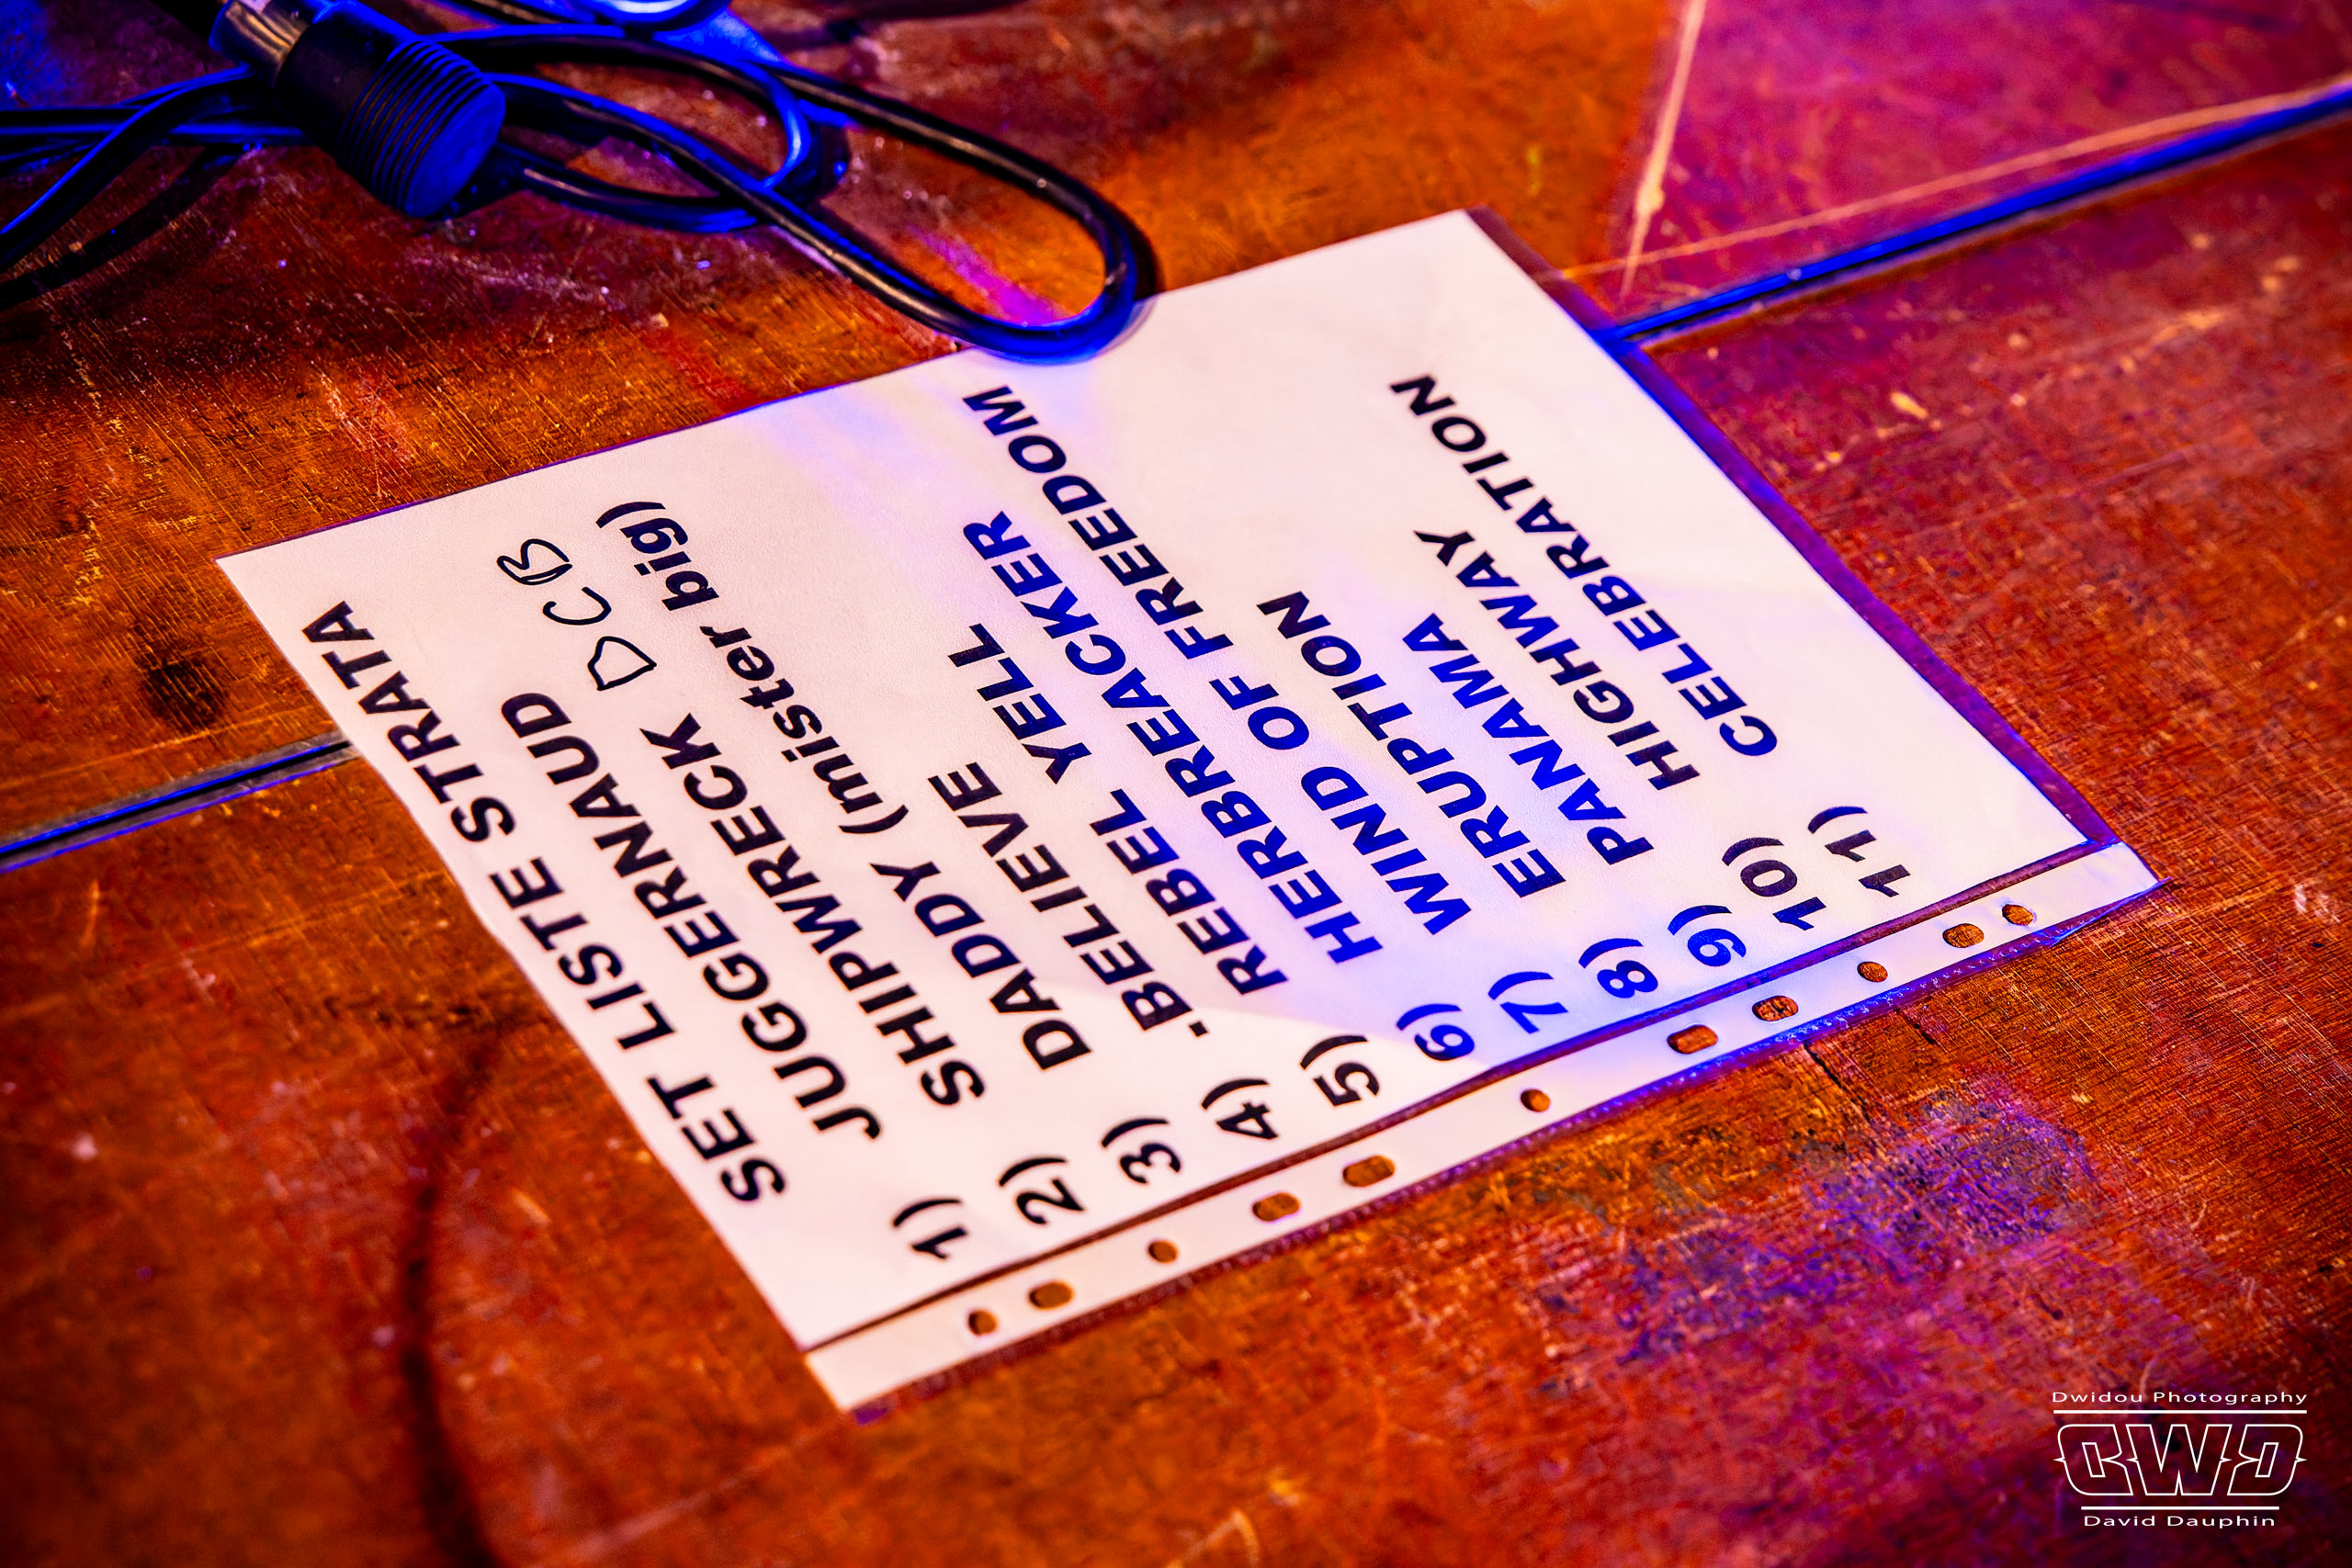 SET LISTE STRATA
1) JUGGERNAUD
2) SHIPWRECK DCB
3) DADDY (mister big)
4) .BELIEVE
5) REBEL YELL
6) HERBREACKER
7) WIND OF FREEDOM
8) ERUPTION
9) PANAMA
10) HIGHWAY
11) CELEBRATION
Dwidou Photography
DWD
David Dauphin